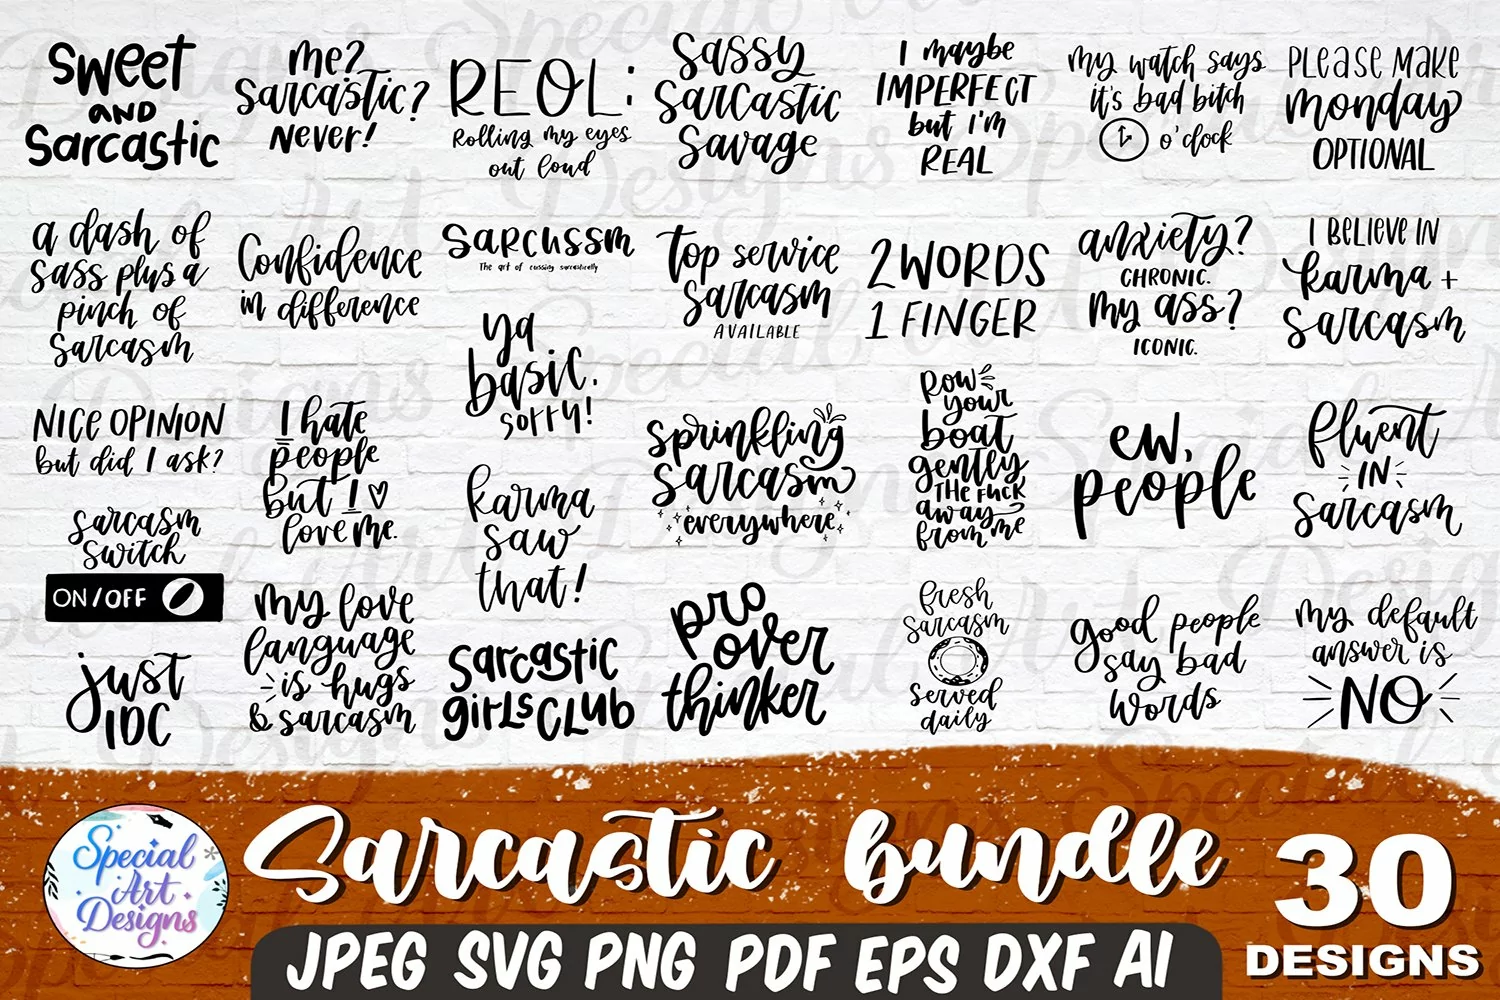 sweet
AND
Sarcastic
me?
Sarcastic?
Never!
REOL:
Rolling my eyes
out loud
Sassy
Sarcastic
Savage
I maybe
IMPERFECT
but I'm
REAL
my watch says
it's bad bitch
o'clock
PLEASE MAKE
monday
OPTIONAL
a dash of
sass plus a
pinch of
sarcasm
Confidence
in difference
SARCUSSM
The art of cussing sarcastically
ya
basic.
sorry!
top service
sarcasm
AVAILABLE
2 WORDS
1 FINGER
anxiety?
CHRONIC.
my ass?
ICONIC.
I BELIEVE IN
karma +
sarcasm
NICE OPINION
but did I ask?
I hate
people
but I
love me.
karma
saw
that!
sprinkling
sarcasm
everywhere
Row
your
boat
gently
THE FUCK
away
from me
ew,
people
fluent
IN
sarcasm
sarcasm
switch
ON/OFF
just
IDC
my love
language
is hugs
& sarcasm
sarcastic
girls club
pro
over
thinker
fresh
sarcasm
served
daily
good people
say bad
words
my default
answer is
NO
Special
Art
Designs
Sarcastic bundle
JPEG SVG PNG PDF EPS DXF AI
30
DESIGNS